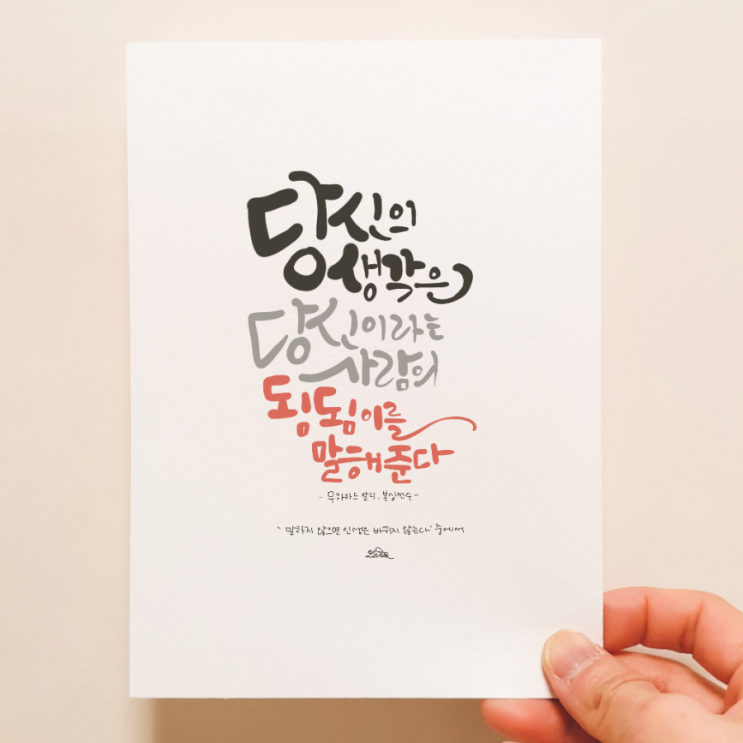 당신의
생각은
당신이라는
사람의
됨됨이를
말해준다
- 무하마드 알리 . 복싱선수 -
'말하지 않으면 인생은 바뀌지 않는다' 중에서